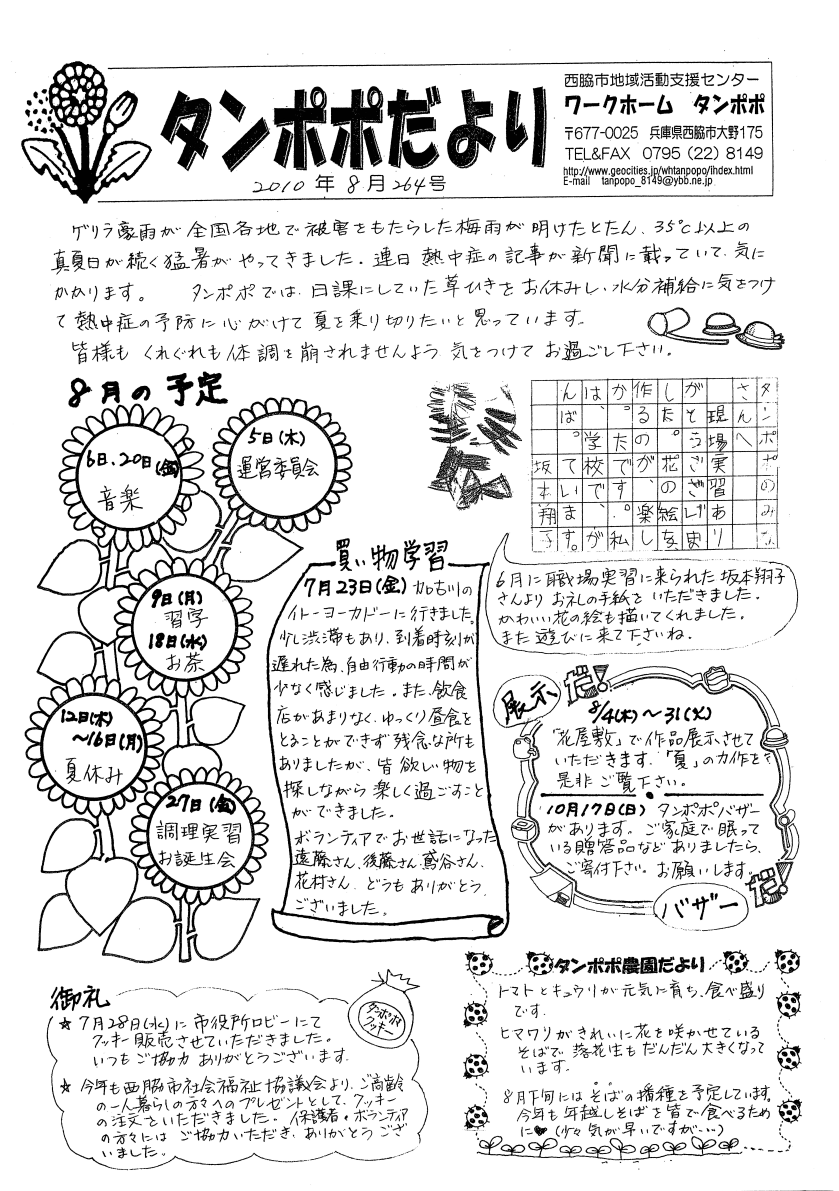 タンポポだより
2010年8月264号
西脇市地域活動支援センター
ワークホーム タンポポ
〒677-0025 兵庫県西脇市大野175
TEL&FAX 0795 (22) 8149
http://www.geocities.jp/whtanpopo/ihdex.html
E-mail tanpopo_8149@ybb.ne.jp
ゲリラ豪雨が全国各地で被害をもたらした梅雨が明けたとたん、35℃以上の
真夏日が続く猛暑がやってきました。連日熱中症の記事が新聞に載っていて、気に
かかります。 タンポポでは、日課にしていた草ひきをお休みし、水分補給に気をつけ
て熱中症の予防に心がけて夏を乗り切りたいと思っています。
皆様もくれぐれも体調を崩されませんよう気をつけてお過ごし下さい。
8月の予定
5日(木)
運営委員会
6日、20日(金)
音楽
9日(月)
習字
18日(水)
お茶
12日(木)
~16日(月)
夏休み
27日(金)
調理実習
お誕生会
タンポポのみな
さんへ
現場実習あり
がとうございま
した。花の絵を
作るのが楽し
かったです。私
は、学校で
がん
ばっています。
坂本翔子
6月に職場実習に来られた坂本翔子
さんよりお礼の手紙をいただきました。
かわいい花の絵も描いてくれました。
また遊びに来て下さいね。
買い物学習
7月23日(金) 加古川の
イトーヨーカドーに行きました。
少し渋滞もあり、到着時刻が
遅れた為、自由行動の時間が
少なく感じました。また、飲食
店があまりなく、ゆっくり昼食を
とることができず残念な所も
ありましたが、皆欲しい物を
探しながら楽しく過ごすこと
ができました。
ボランティアでお世話になった
遠藤さん、後藤さん、鳶谷さん、
花村さん、どうもありがとう
ございました。
展示だ!
8/4(木)~31(火)
「花屋敷」で作品展示させて
いただきます。「夏」の力作を
是非ご覧下さい。
10月17日(日) タンポポバザー
があります。ご家庭で眠って
いる贈答品などありましたら、
ご寄付下さい。お願いします。
バザーだ!
御礼
★7月28日(水)に市役所ロビーにて
クッキー販売させていただきました。
いつもご協力ありがとうございます。
★今年も西脇市社会福祉協議会より、ご高齢
の一人暮らしの方々へのプレゼントとして、クッキー
の注文をいただきました。保護者・ボランティア
の方々にはご協力いただき、ありがとうござ
いました。
タンポポ
クッキー
タンポポ農園だより
トマトとキュウリが元気に育ち、食べ盛り
です。
ヒマワリがきれいに花を咲かせている
そばで落花生もだんだん大きくなって
います。
8月下旬にはそばの播種を予定しています。
今年も年越しそばを皆で食べるため
に♥(少々気が早いですが…)